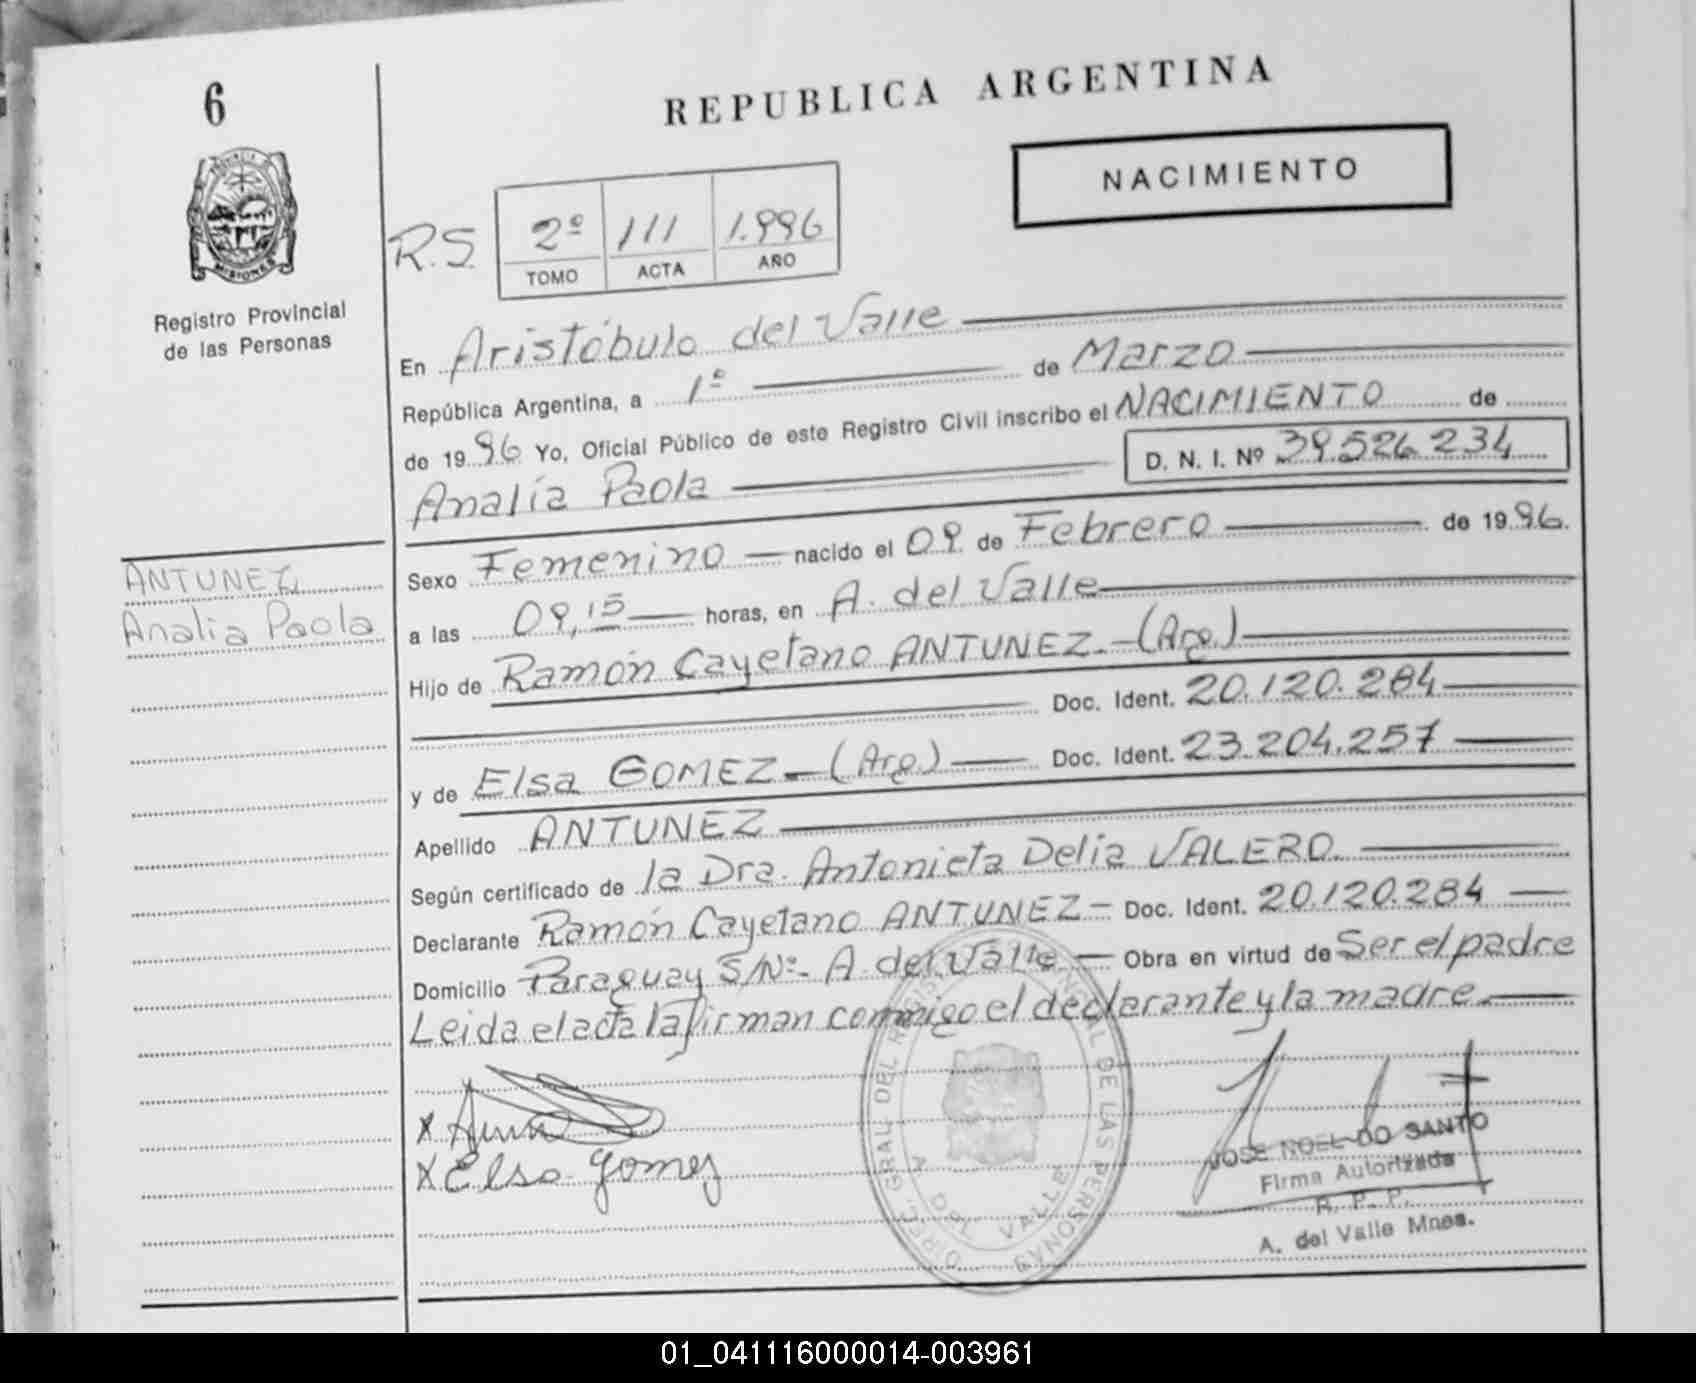 6
REPUBLICA ARGENTINA
NACIMIENTO
PROVINCIA DE
MISIONES
Registro Provincial
de las Personas
R.S. 2º 111 1.996
TOMO ACTA AÑO
En Aristóbulo del Valle
República Argentina, a 1º de Marzo
de 1996 Yo, Oficial Público de este Registro Civil inscribo el NACIMIENTO de
Analía Paola D. N. I. Nº 39.526.234
ANTUNEZ,
Analia Paola
Sexo Femenino nacido el 09 de Febrero de 1996.
a las 09,15 horas, en A. del Valle
Hijo de Ramón Cayetano ANTUNEZ.-(Arg.)
Doc. Ident. 20.120.284
y de Elsa GOMEZ-(Arg.) Doc. Ident. 23.204.257
Apellido ANTUNEZ
Según certificado de la Dra. Antonieta Delia VALERO.
Declarante Ramón Cayetano ANTUNEZ- Doc. Ident. 20.120.284
Domicilio Paraguay S/Nº- A. del Valle- Obra en virtud de Ser el padre
Leida el acta la firman conmigo el declarante y la madre.
X
X Elsa Gomez
DIREC. GRAL. DEL REGISTRO PROVINCIAL DE LAS PERSONAS
A. DEL VALLE
JOSE NOEL DO SANTO
Firma Autorizada
R. P. P.
A. del Valle Mnes.
01_041116000014-003961